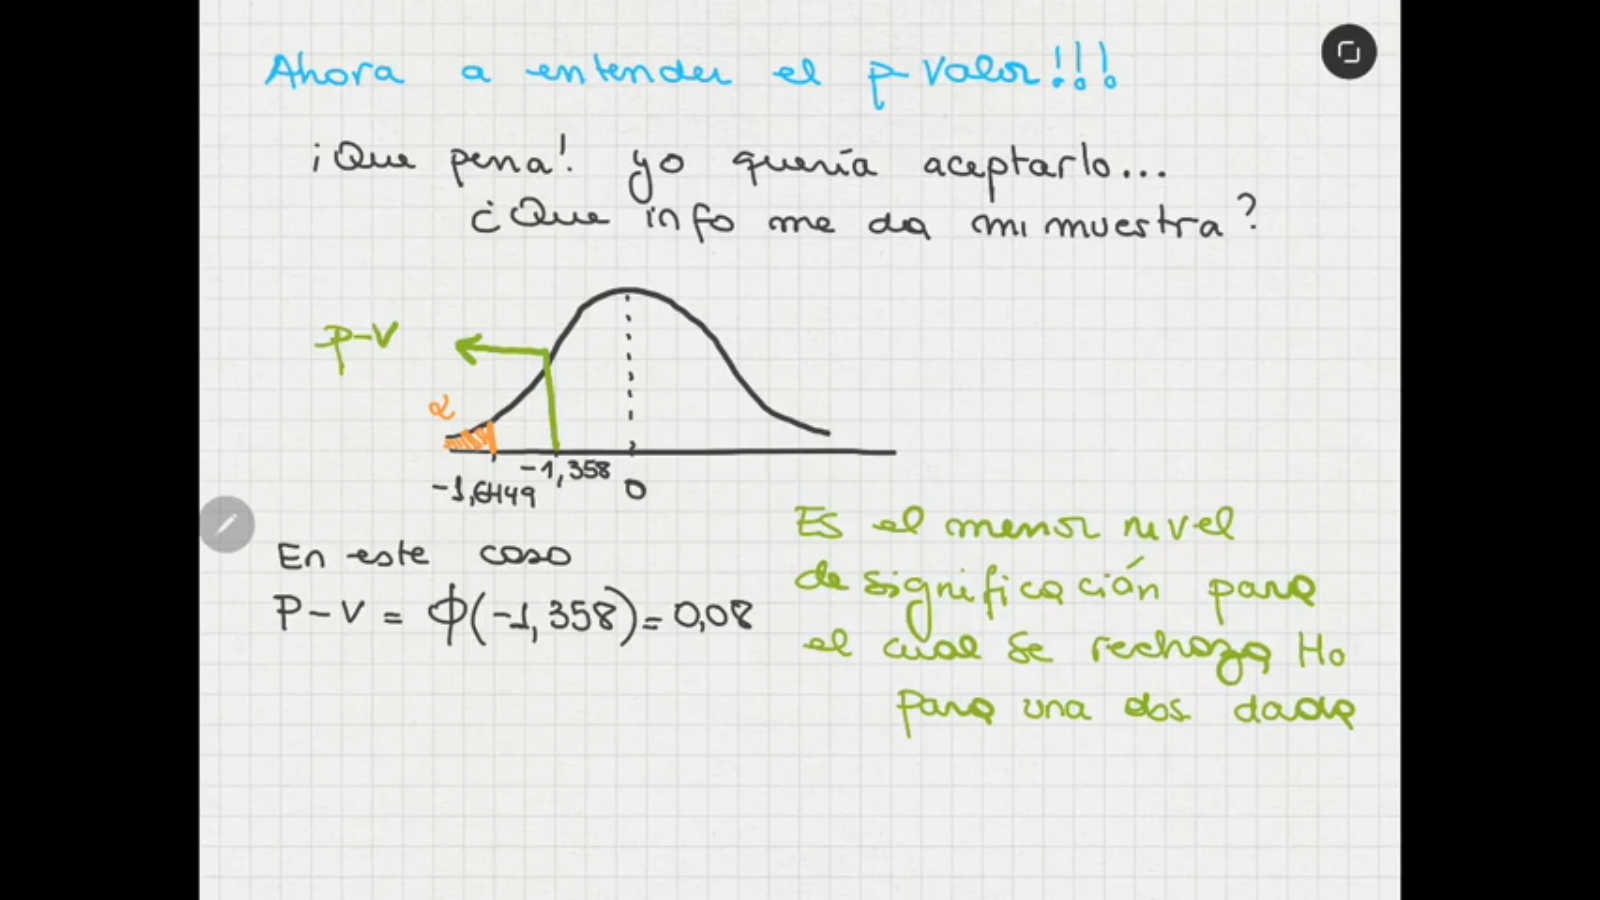 Ahora a entender el p valor!!!
¡Que pena! yo quería aceptarlo...
¿Que info me da mi muestra?
p-v
α
-1,358
-1,6449
0
En este caso
P-V = Φ(-1,358) = 0,08
Es el menor nivel
de significación para
el cual se rechaza Ho
para una obs dada